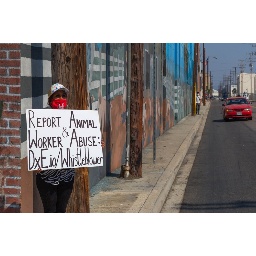 REPORT ANIMAL
&
WORKER ABUSE:
DxE.io/Whistleblower